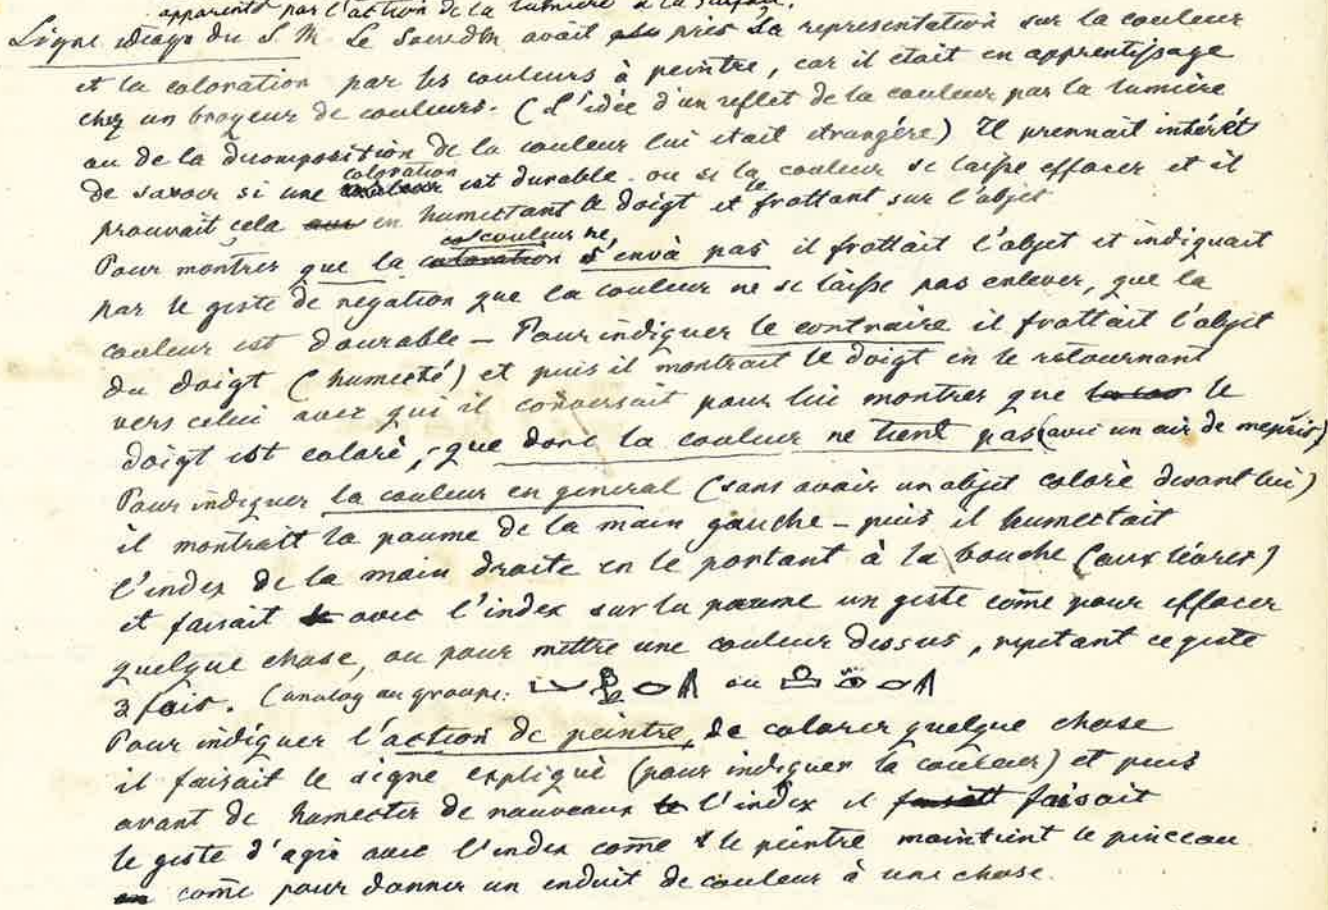 apparente par l'action de la lumière à la
Ligne du S. M. Le Sourdm avait pris sa representation sur la couleur
et la coloration par les couleurs à peintre, car il était en apprentissage
chez un broyeur de couleurs. (L'idée d'un reflet de la couleur par la lumière
ou de la decomposition de la couleur lui etait etrangére) Il prennait intérêt
coloration
de savoir si une est durable. ou si la couleur se laisse effacer et il
prouvait cela en humectant le doigt et le frottant sur l'objet
couleur ne
Pour montrer que la coloration s'en và pas il frottait l'objet et indiquait
par le geste de négation que la couleur ne se laisse pas enlever, que la
couleur est dourable – Pour indiquer le contraire il frottait l'objet
du doigt (humecté) et puis il montrait le doigt en le retournant
vers celui avec qui il conversait pour lui montrer que le
doigt est coloré, que donc la couleur ne tient pas (avec un air de mepris)
Pour indiquer la couleur en general (sans avoir un objet coloré devant lui)
il montrait la paume de la main gauche – puis il humectait
l'index de la main droite en le portant à la bouche (aux lèvres)
et faisait avec l'index sur la paume un geste com̄e pour effacer
quelque chose, ou pour mettre une couleur dessus, repetant ce geste
3 fois. (analog au groupe: ou
Pour indiquer l'action de peintre, de colorer quelque chose
il faisait le signe expliqué (pour indiquer la couleur) et puis
avant de humecter de nouveaux l'index il faisait
le geste d'agir avec l'index com̄e le peintre maintient le pinceau
com̄e pour donner un enduit de couleur à une chose.